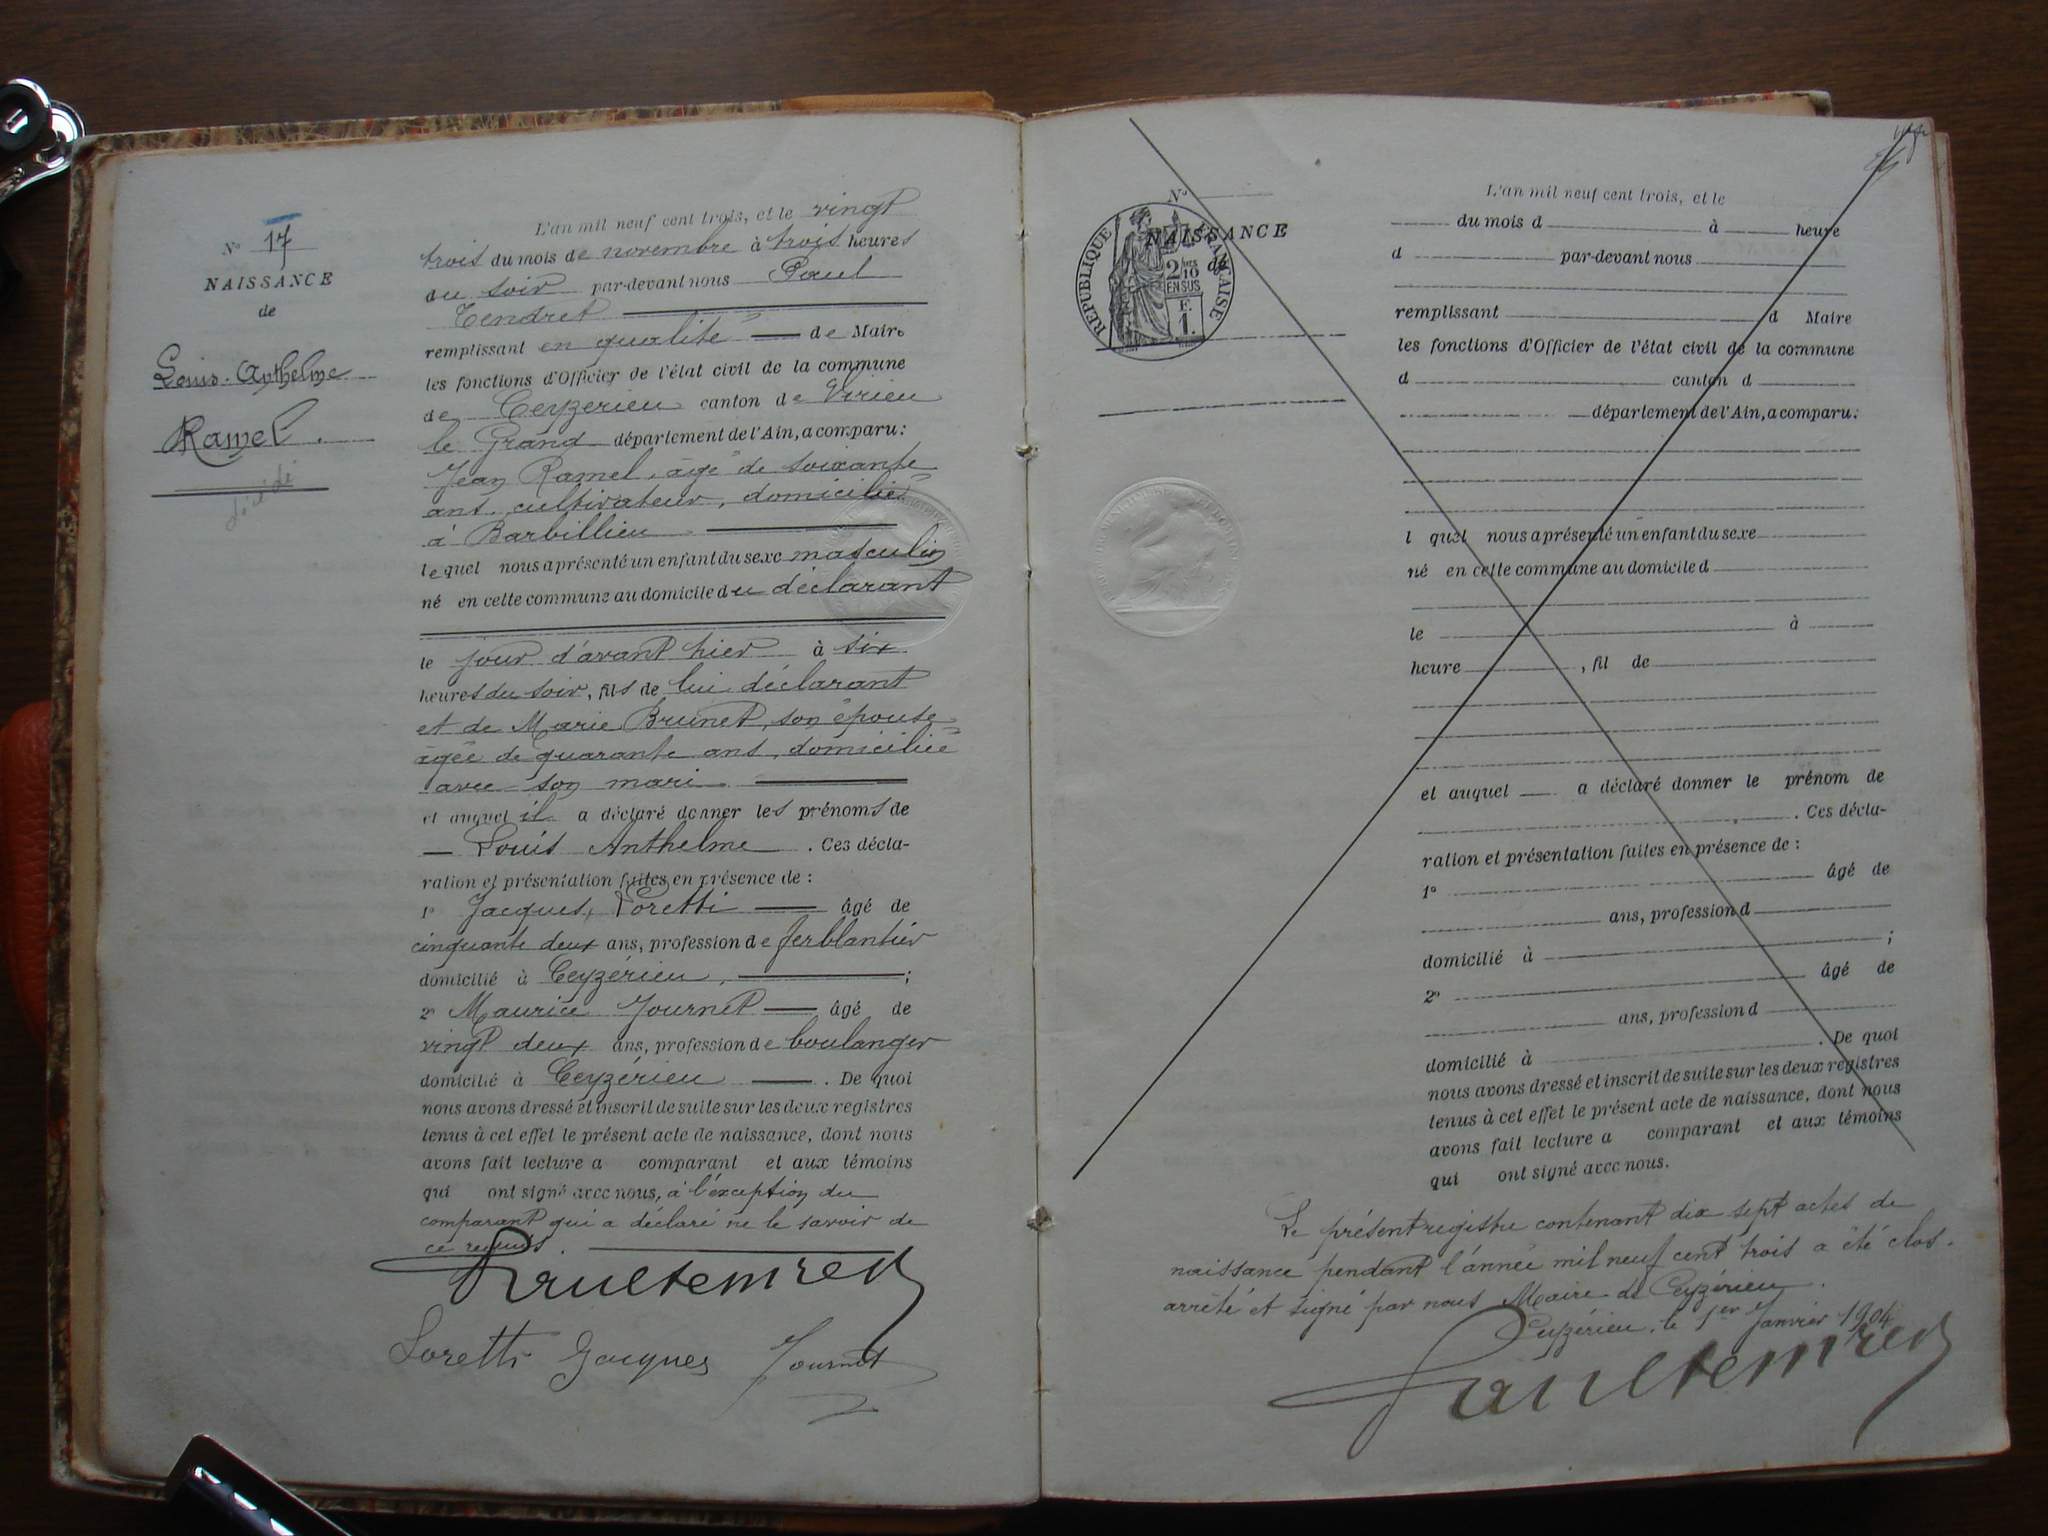 N° 17
NAISSANCE
de
Louis-Anthelme
Ramel.
décédé
L'an mil neuf cent trois, et le vingt
trois du mois de novembre à trois heures
du soir par-devant nous Paul
Tendret
remplissant en qualité de Maire
les fonctions d'Officier de l'état civil de la commune
de Ceyzerieu canton de Virieu
le Grand département de l'Ain, a comparu:
Jean Ramel, âgé de soixante
ans, cultivateur, domicilié
à Barbillieu
lequel nous a présenté un enfant du sexe masculin
né en cette commune au domicile du déclarant
le jour d'avant hier à six
heures du soir, fils de lui déclarant
et de Marie Brunet, son épouse
âgée de quarante ans, domiciliée
avec son mari
et auquel il a déclaré donner les prénoms de
Louis Anthelme. Ces décla-
ration et présentation faites en présence de :
1° Jacques, Loretti âgé de
cinquante deux ans, profession de ferblantier
domicilié à Ceyzérieu, ;
2° Maurice Journet âgé de
vingt deux ans, profession de boulanger
domicilié à Ceyzérieu. De quoi
nous avons dressé et inscrit de suite sur les deux registres
tenus à cet effet le présent acte de naissance, dont nous
avons fait lecture a comparant et aux témoins
qui ont signé avec nous, à l'exception du
comparant qui a déclaré ne le savoir de
ce requis.
Paul tendret
Loretti Jacques Journet
N°
NAISSANCE
de
REPUBLIQUE FRANÇAISE
2/10
EN SUS
F.
1.
L'an mil neuf cent trois, et le
du mois d à heure
d par-devant nous
remplissant d Maire
les fonctions d'Officier de l'état civil de la commune
d canton d
département de l'Ain, a comparu:
l quel nous a présenté un enfant du sexe
né en cette commune au domicile d
le à
heure , fil de
et auquel a déclaré donner le prénom de
. Ces décla-
ration et présentation faites en présence de :
1° âgé de
ans, profession d
domicilié à ;
2° âgé de
ans, profession d
domicilié à . De quoi
nous avons dressé et inscrit de suite sur les deux registres
tenus à cet effet le présent acte de naissance, dont nous
avons fait lecture a comparant et aux témoins
qui ont signé avec nous.
Le présent registre contenant dix sept actes de
naissance pendant l'année mil neuf cent trois a été clos.
arrêté et signé par nous Maire de Ceyzérieu.
Ceyzérieu, le 1er Janvier 1904
Paul tendret